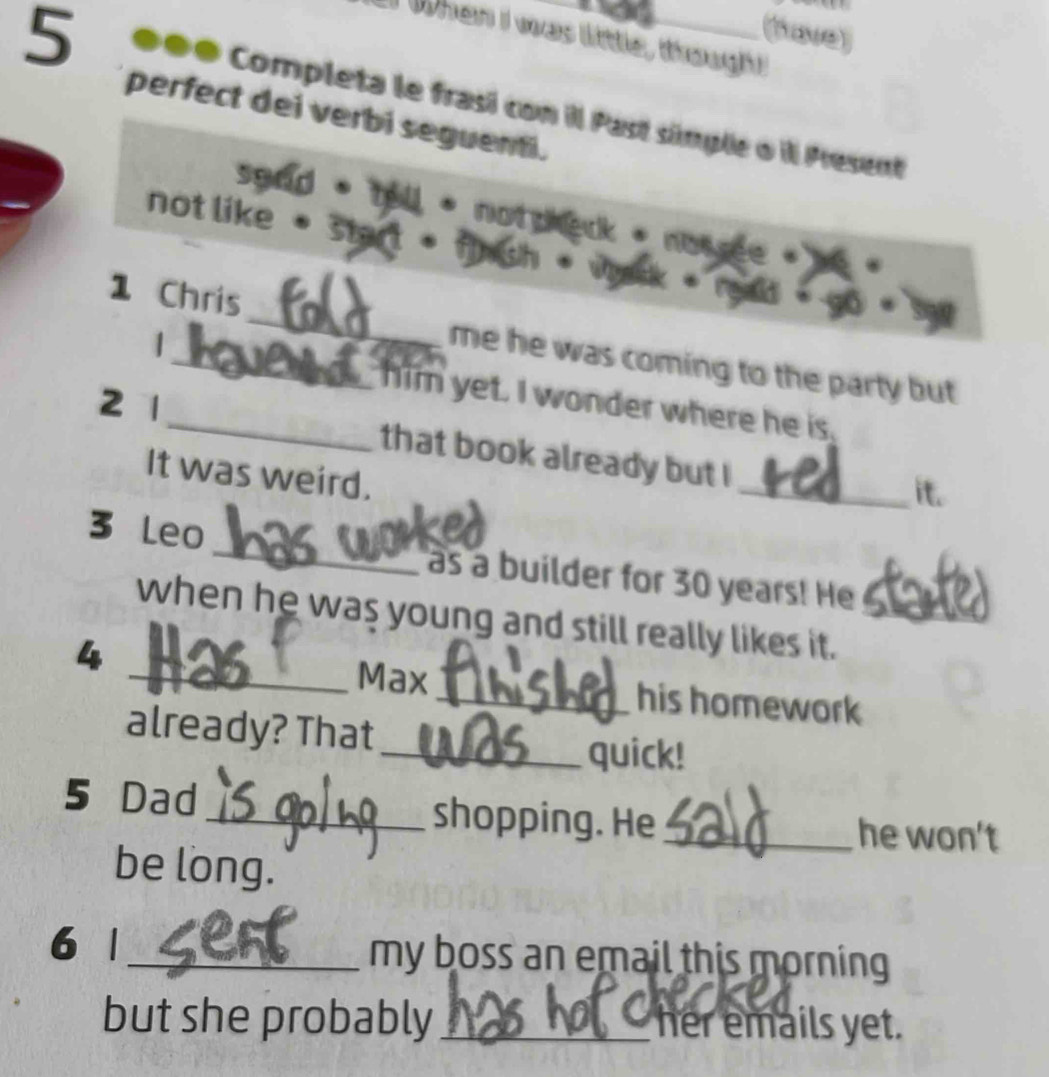 When I was little, though! (have)
5 Completa le frasi con il Past simple o il Present
perfect dei verbi seguenti.
send • tell • not check • not see • be •
not like • start • finish • work • read • go • say
1 Chris told me he was coming to the party but
I haven't seen him yet. I wonder where he is.
2 I ________ that book already but I red it.
It was weird.
3 Leo has worked as a builder for 30 years! He started
when he was young and still really likes it.
4 Has Max finished his homework
already? That was quick!
5 Dad is going shopping. He said he won't
be long.
6 I sent my boss an email this morning
but she probably has not checked her emails yet.